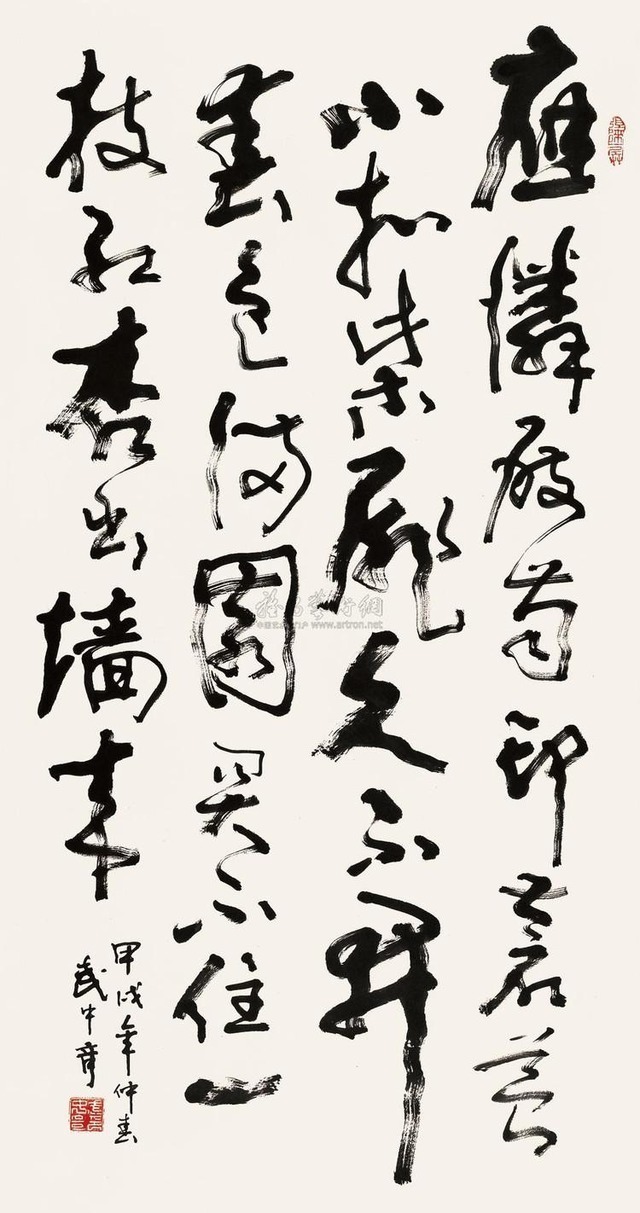 應憐屐齒印蒼苔
小扣柴扉久不開
春色滿園關不住一
枝紅杏出墻來
甲戌年仲春
武中奇
www.artron.net